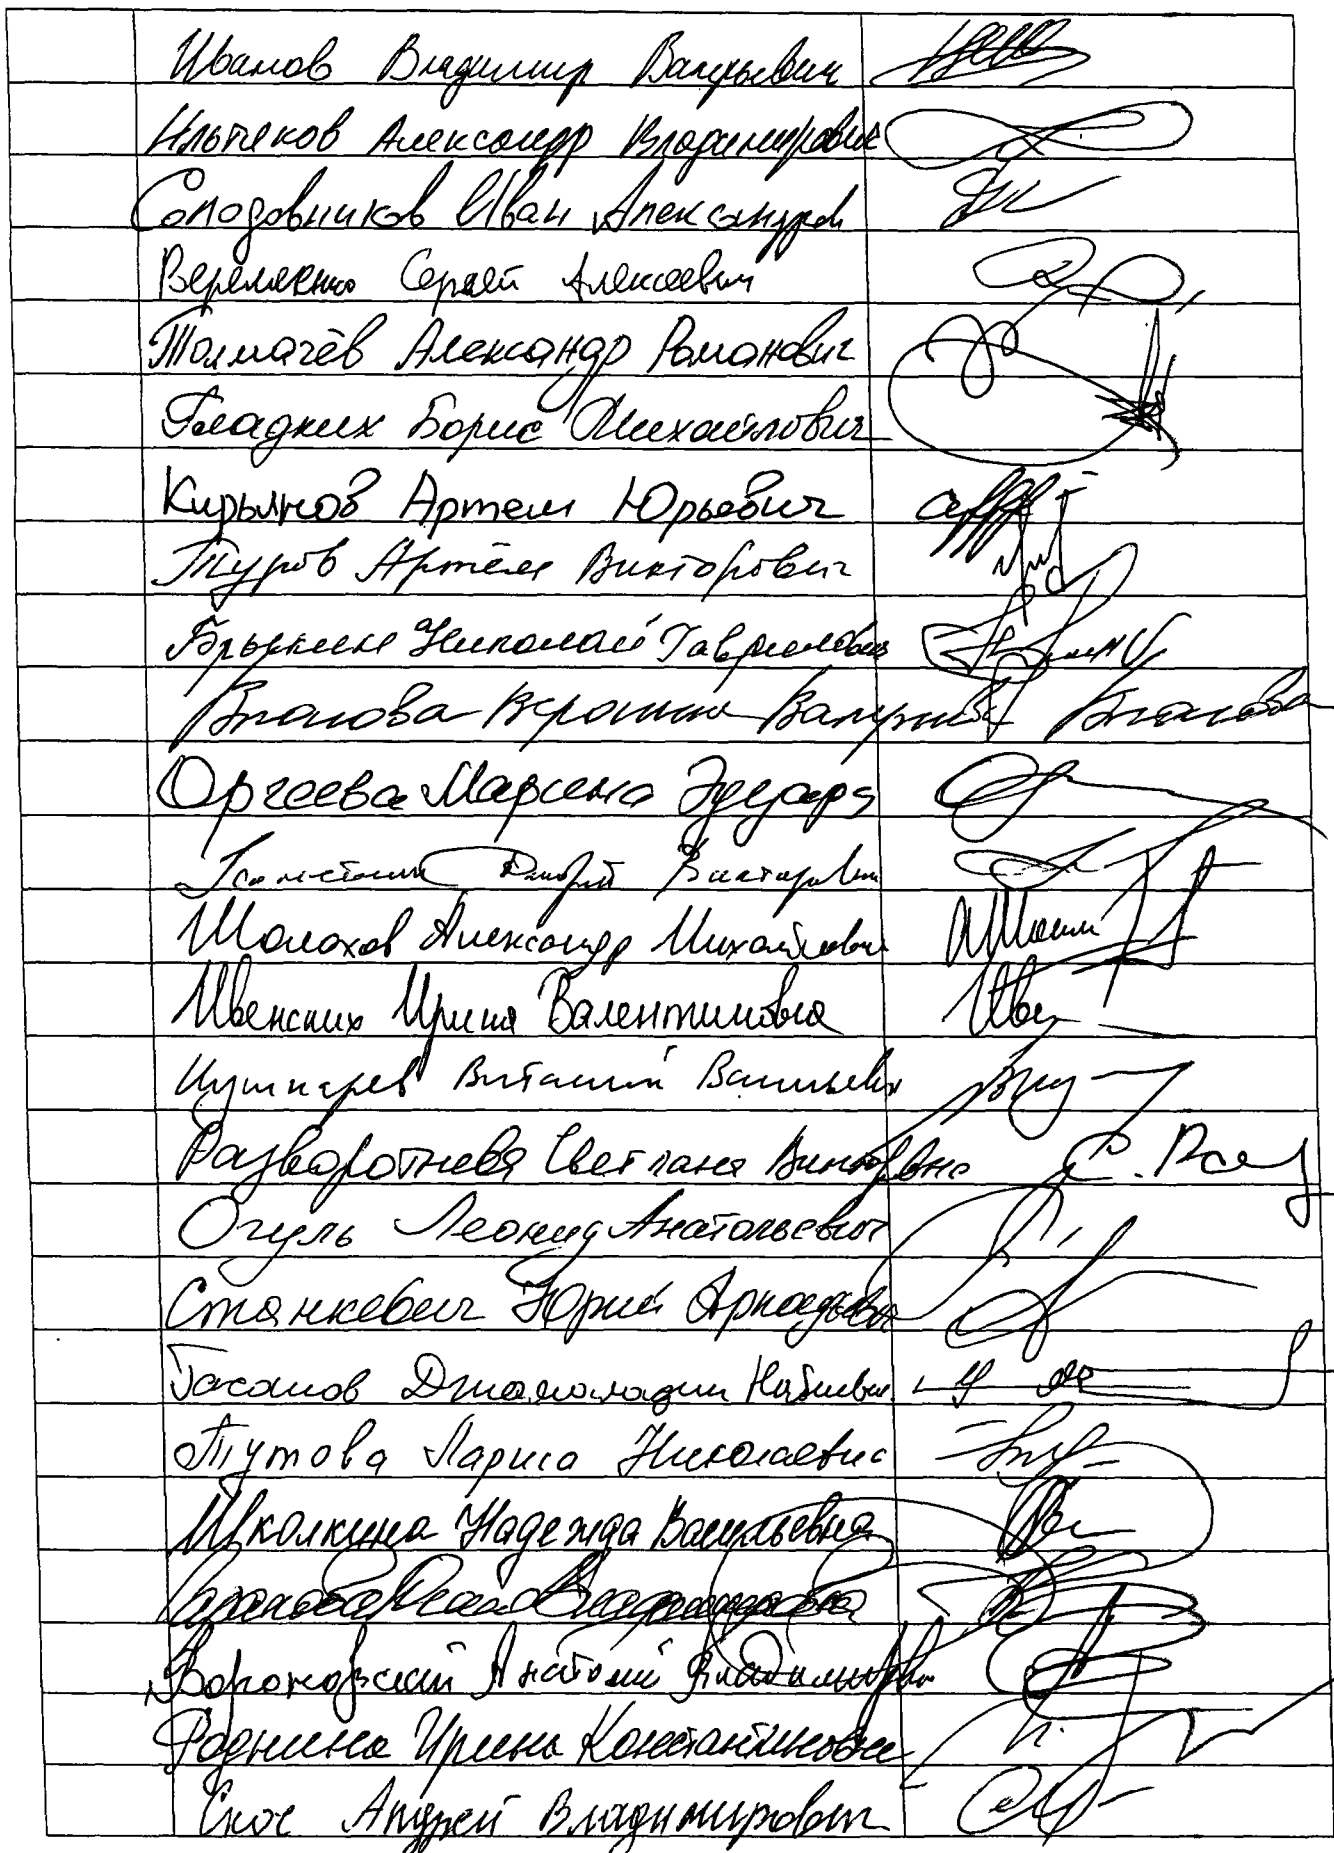 Иванов Владимир Валерьевич
Ильтяков Александр Владимирович
Солодовников Иван Александров
Веремеенко Сергей Алексеевич
Толмачёв Александр Романович
Гладких Борис Михайлович
Кирьянов Артем Юрьевич
Туров Артём Викторович
Брыкин Николай Гаврилович
Власова Вероника Валерьевна Власова
Оргеева Марина Эдуард
Дмитрий Викторович
Шолохов Александр Михайлович
Ивенских Ирина Валентиновна Иве
Кушнарев Виталий Васильевич
Разворотнева Светлана Викторовна С. Раз
Огуль Леонид Анатольевич
Станкевич Юрий Аркадьевич
Гасанов Джамаладин Набиевич
Тутова Лариса Николаевна
Школкина Надежда Васильевна
Вороновский Анатолий Владимирович
Роднина Ирина Константиновна
Скоч Андрей Владимирович